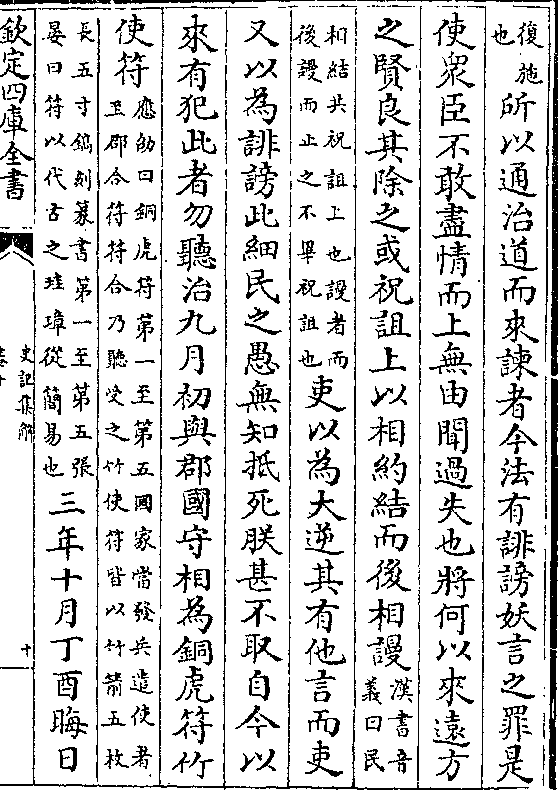 復施
也
所以通治道而來諫者今法有誹謗妖言之罪是
使衆臣不敢盡情而上無由聞過失也將何以來遠方
之賢良其除之或祝詛上以相約結而後相謾
漢書音
義曰民
相結共祝詛上也謾者而
後謾而止之不畢祝詛也
吏以為大逆其有他言而吏
又以為誹謗此細民之愚無知抵死朕甚不取自今以
來有犯此者勿聽治九月初與郡國守相為銅虎符竹
使符
應劭曰銅虎符第一至第五國家當發兵遣使者
至郡合符符合乃聽受之竹使符皆以竹箭五枚
長五寸鐫刻篆書第一至第五張
晏曰符以代古之珪璋從簡易也
三年十月丁酉晦日
欽定四庫全書
史記集解
卷十
十